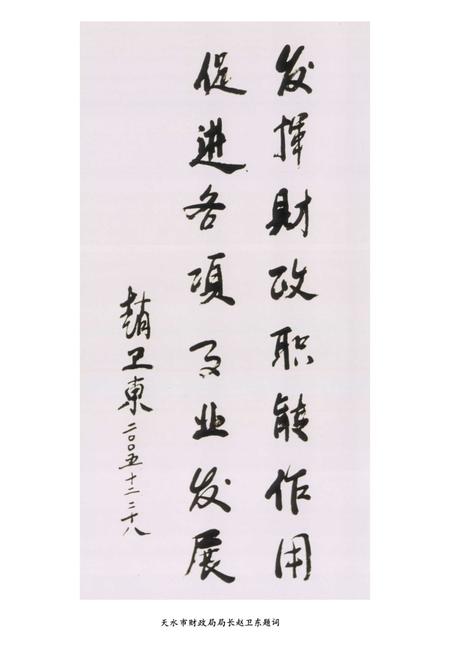 发挥财政职能作用
促进各项事业发展
趙卫東
二〇〇五十二二十八
天水市财政局局长赵卫东题词